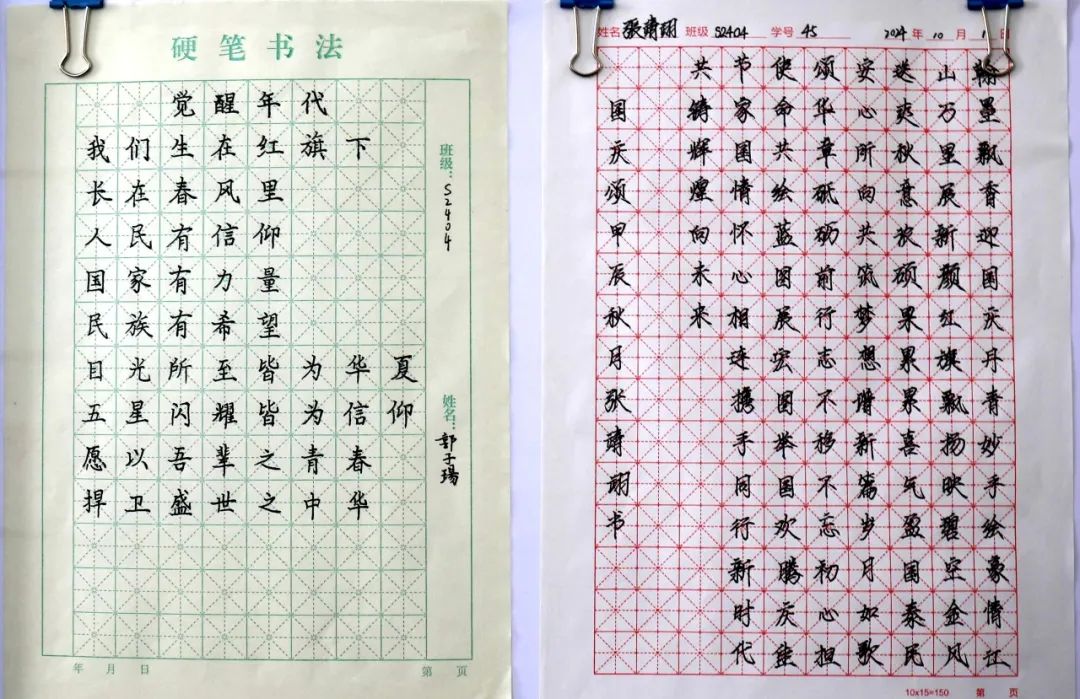 硬笔书法
觉醒年代
我们生在红旗下
长在春风里
人民有信仰
国家有力量
民族有希望
目光所至皆为华夏
五星闪耀皆为信仰
愿以吾辈之青春
捍卫盛世之中华
班级：S2404
姓名：郭于瑒
年 月 日
第 页
姓名 张靖翊 班级 S2404 学号 45 2024 年 10 月 1 日
翰墨飘香迎国庆丹青妙手绘豪情江
山万里展新颜红旗飘扬映碧空金风
送爽秋意浓硕果累累喜气盈国泰民
安心所向共筑梦想增新篇岁月如歌
颂华章砥砺前行志不移不忘初心担
使命共绘蓝图展宏图举国欢腾庆佳
节家国情怀心相连携手同行新时代
共铸辉煌向未来
国庆颂甲辰秋月张靖翊书
10x15=150 第 页